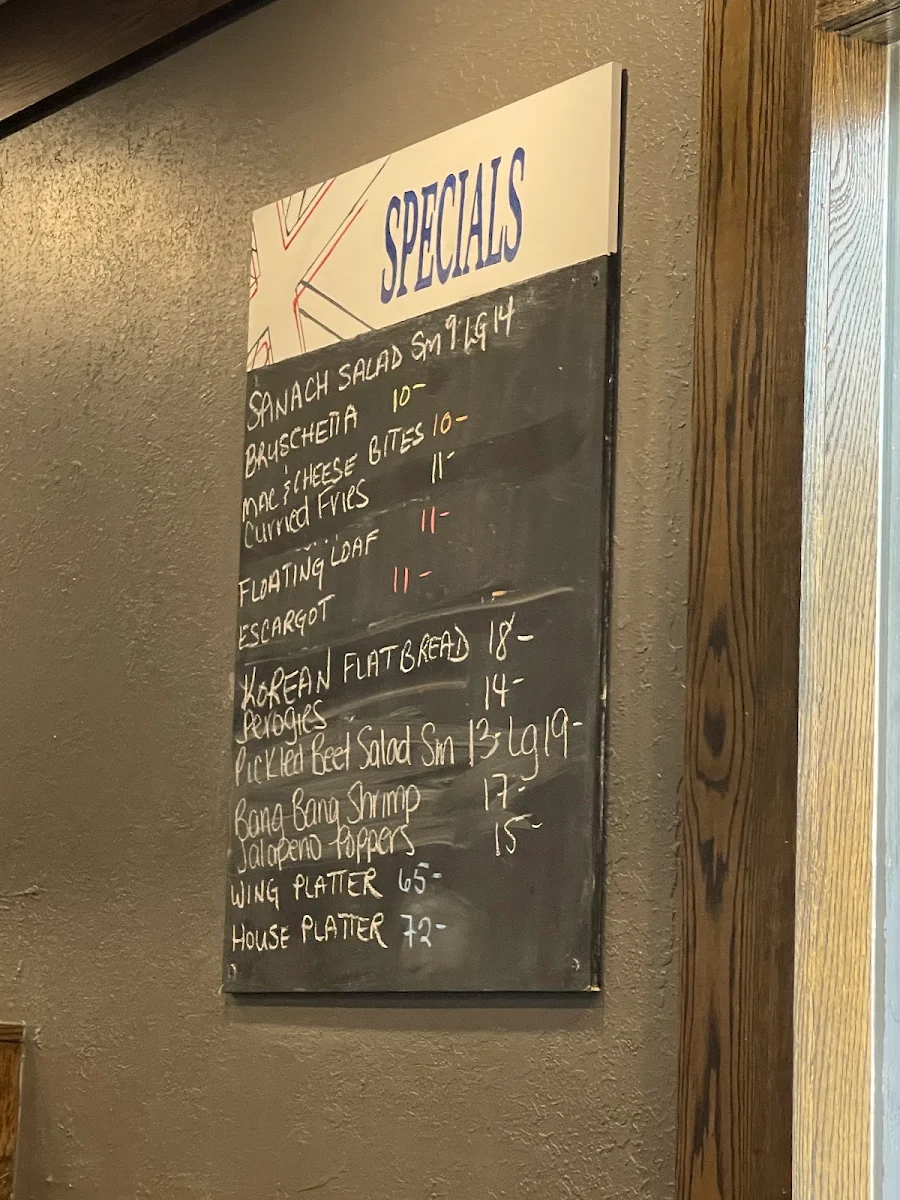 SPECIALS
SANACH SALAD Sm 9 LG 14
BRUSCHETTA 10-
MAC & CHEESE BITES 10-
Curried Fries 11-
FLOATING LOAF 11-
ESCARGOT 11-
KOREAN FLATBREAD 18-
Perogies 14-
Pickled Beet Salad Sm 13- Lg 19-
Bang Bang Shrimp 17-
Jalapeno Poppers 15-
WING PLATTER 65-
HOUSE PLATTER 72-